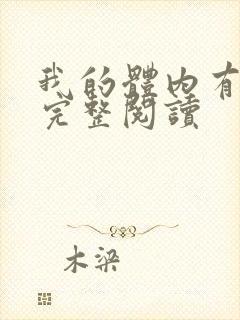 我的體內有
完整閱讀
木梁